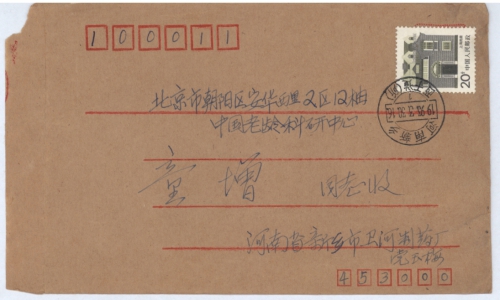 100011
20分 中国人民邮政
北京市朝阳区安华西里又区12楼
中国老龄科研中心
河南新乡
童增 同志收
河南省新乡市卫河制药厂
453000